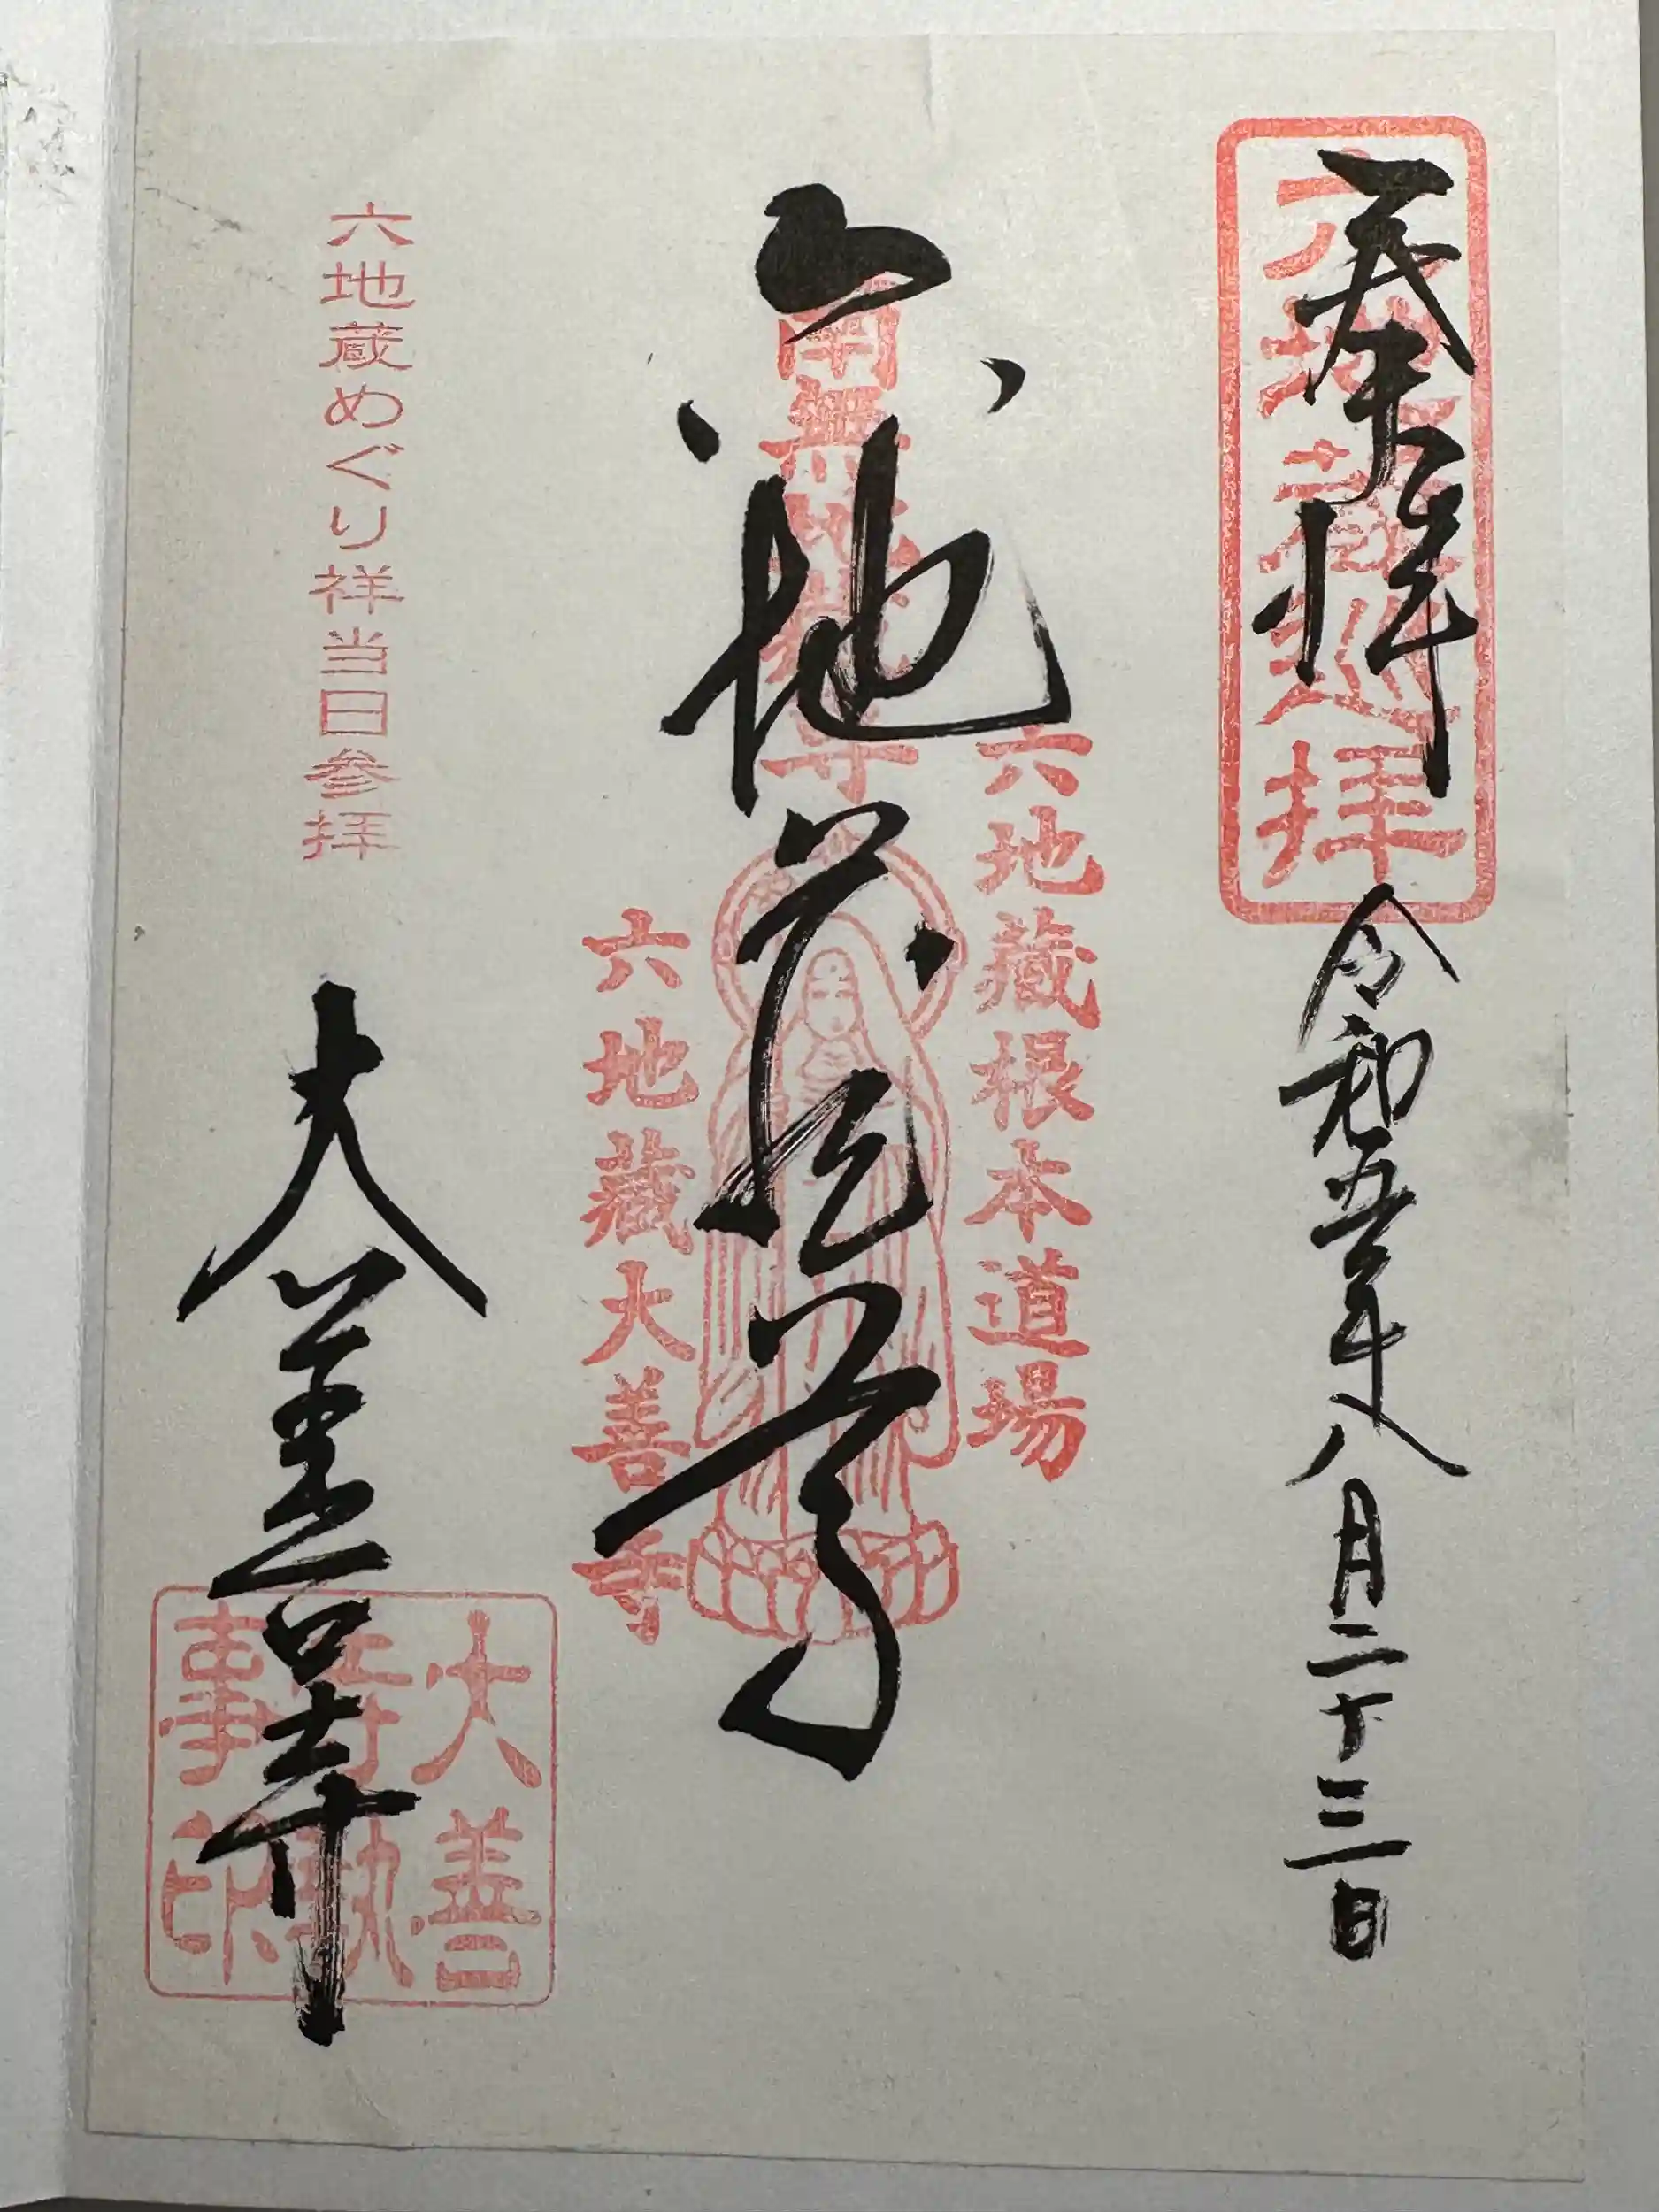 奉拝
令和五年八月二十三日
六地蔵巡拝
六地蔵尊
六地藏根本道場
六地藏大善寺
六地蔵めぐり祥当日参拝
大善寺
大善寺執事印